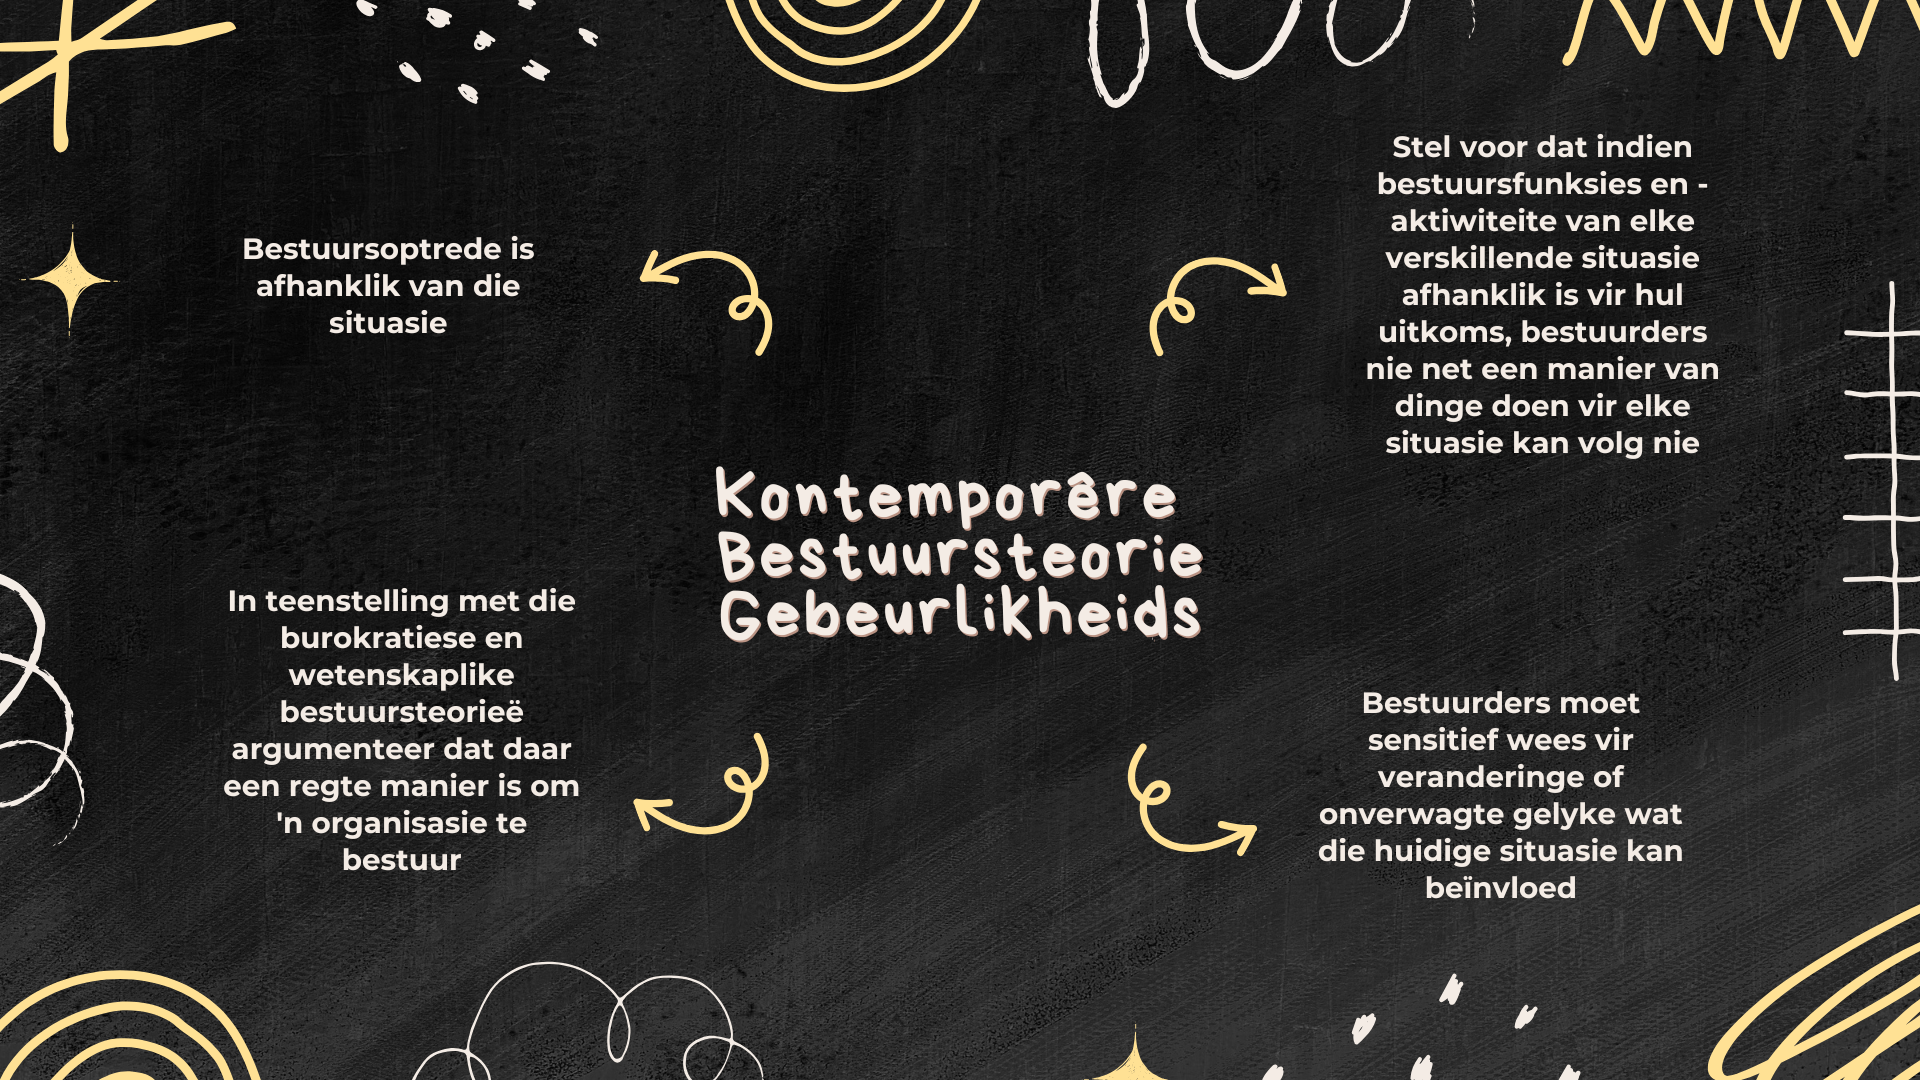 Bestuursoptrede is
afhanklik van die
situasie
Stel voor dat indien
bestuursfunksies en -
aktiwiteite van elke
verskillende situasie
afhanklik is vir hul
uitkoms, bestuurders
nie net een manier van
dinge doen vir elke
situasie kan volg nie
Kontemporêre
Bestuursteorie
Gebeurlikheids
In teenstelling met die
burokratiese en
wetenskaplike
bestuursteorieë
argumenteer dat daar
een regte manier is om
'n organisasie te
bestuur
Bestuurders moet
sensitief wees vir
veranderinge of
onverwagte gelyke wat
die huidige situasie kan
beïnvloed